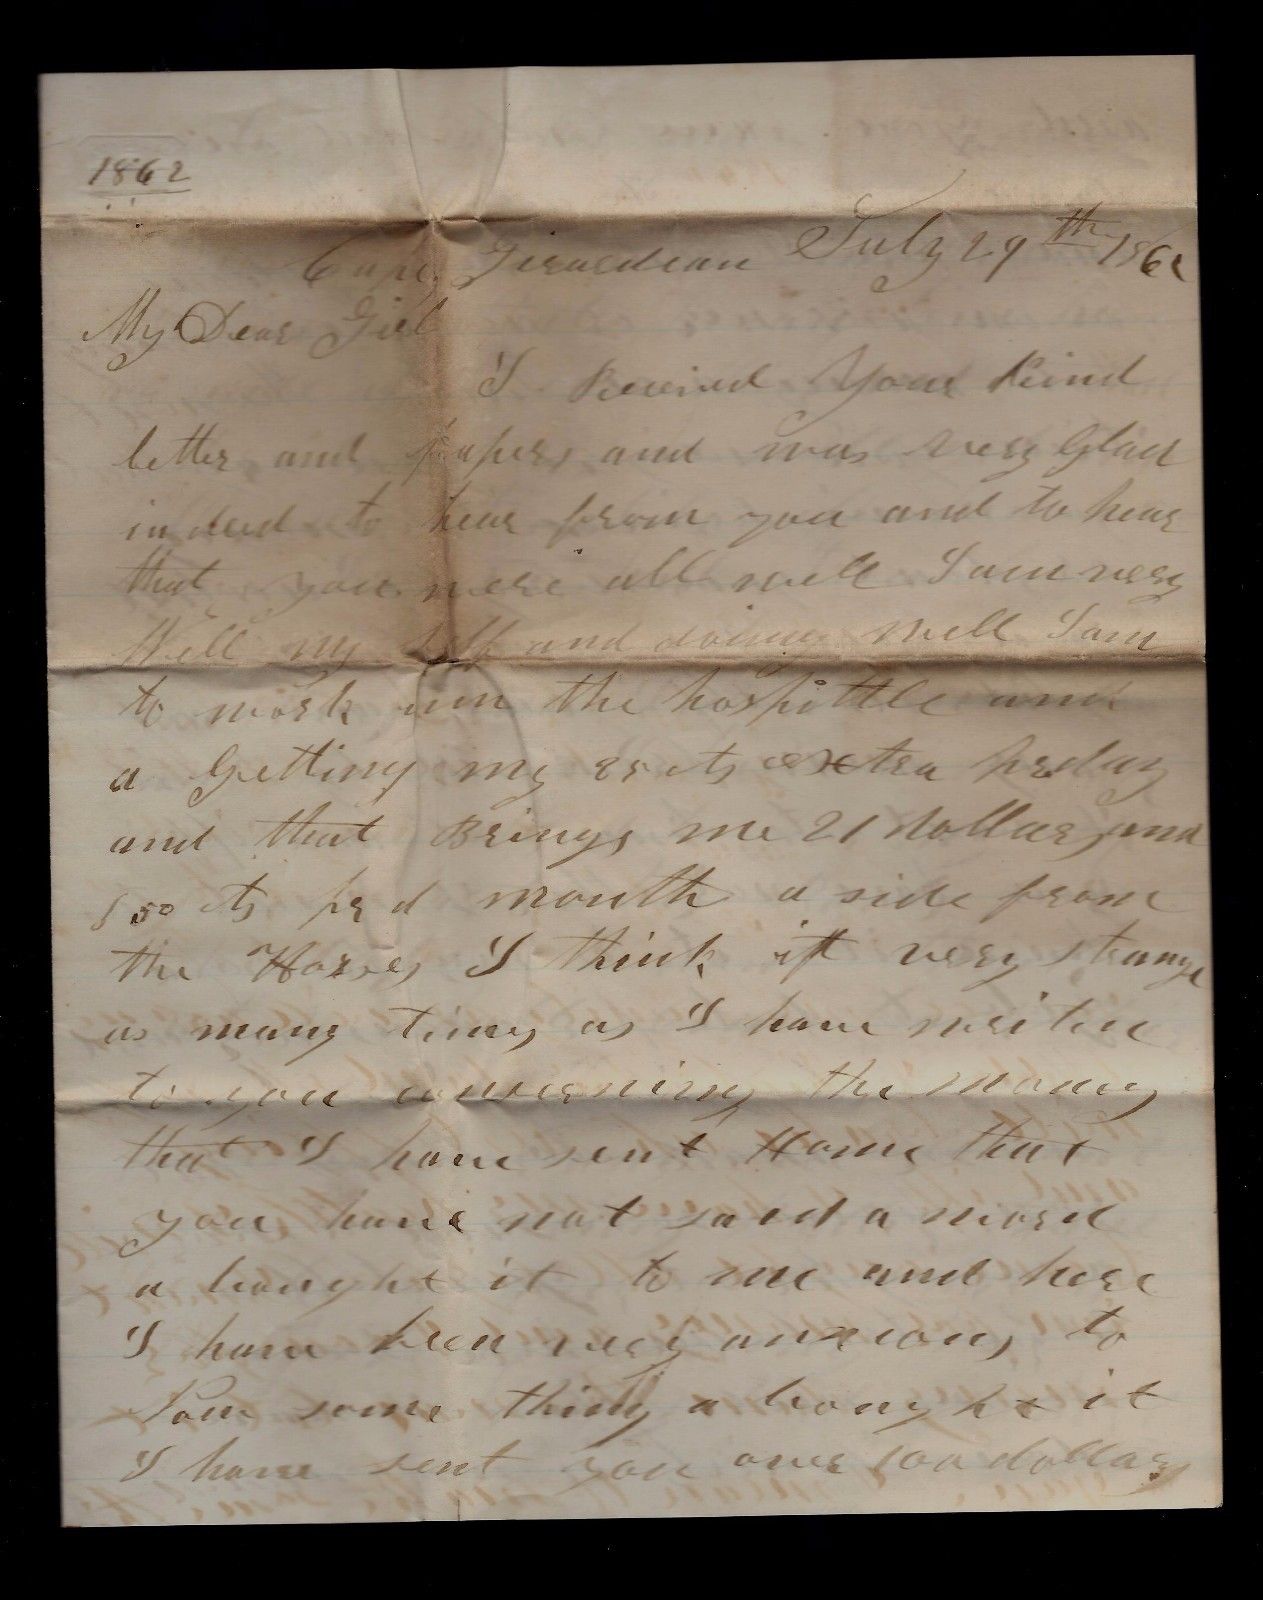 1862
Cape Girardeau July 29th 1862
My Dear Girl
I Recived Your Kind
letter and papers and was very Glad
in deed to hear from you and to hear
that you were all well I am very
Well my self and doing well I am
to work inn the hospittle and
a Getting my 25 cts extra pr day
and that Brings me 21 dollars and
50 cts pr d month a side from
the Horses I think it very strange
as many times as I have writen
to you concerning the money
that I have sent Home that
you have not said a word
a baught it to me and here
I have been very anxious to
some thing a baught it
I have sent you over 100 dollars